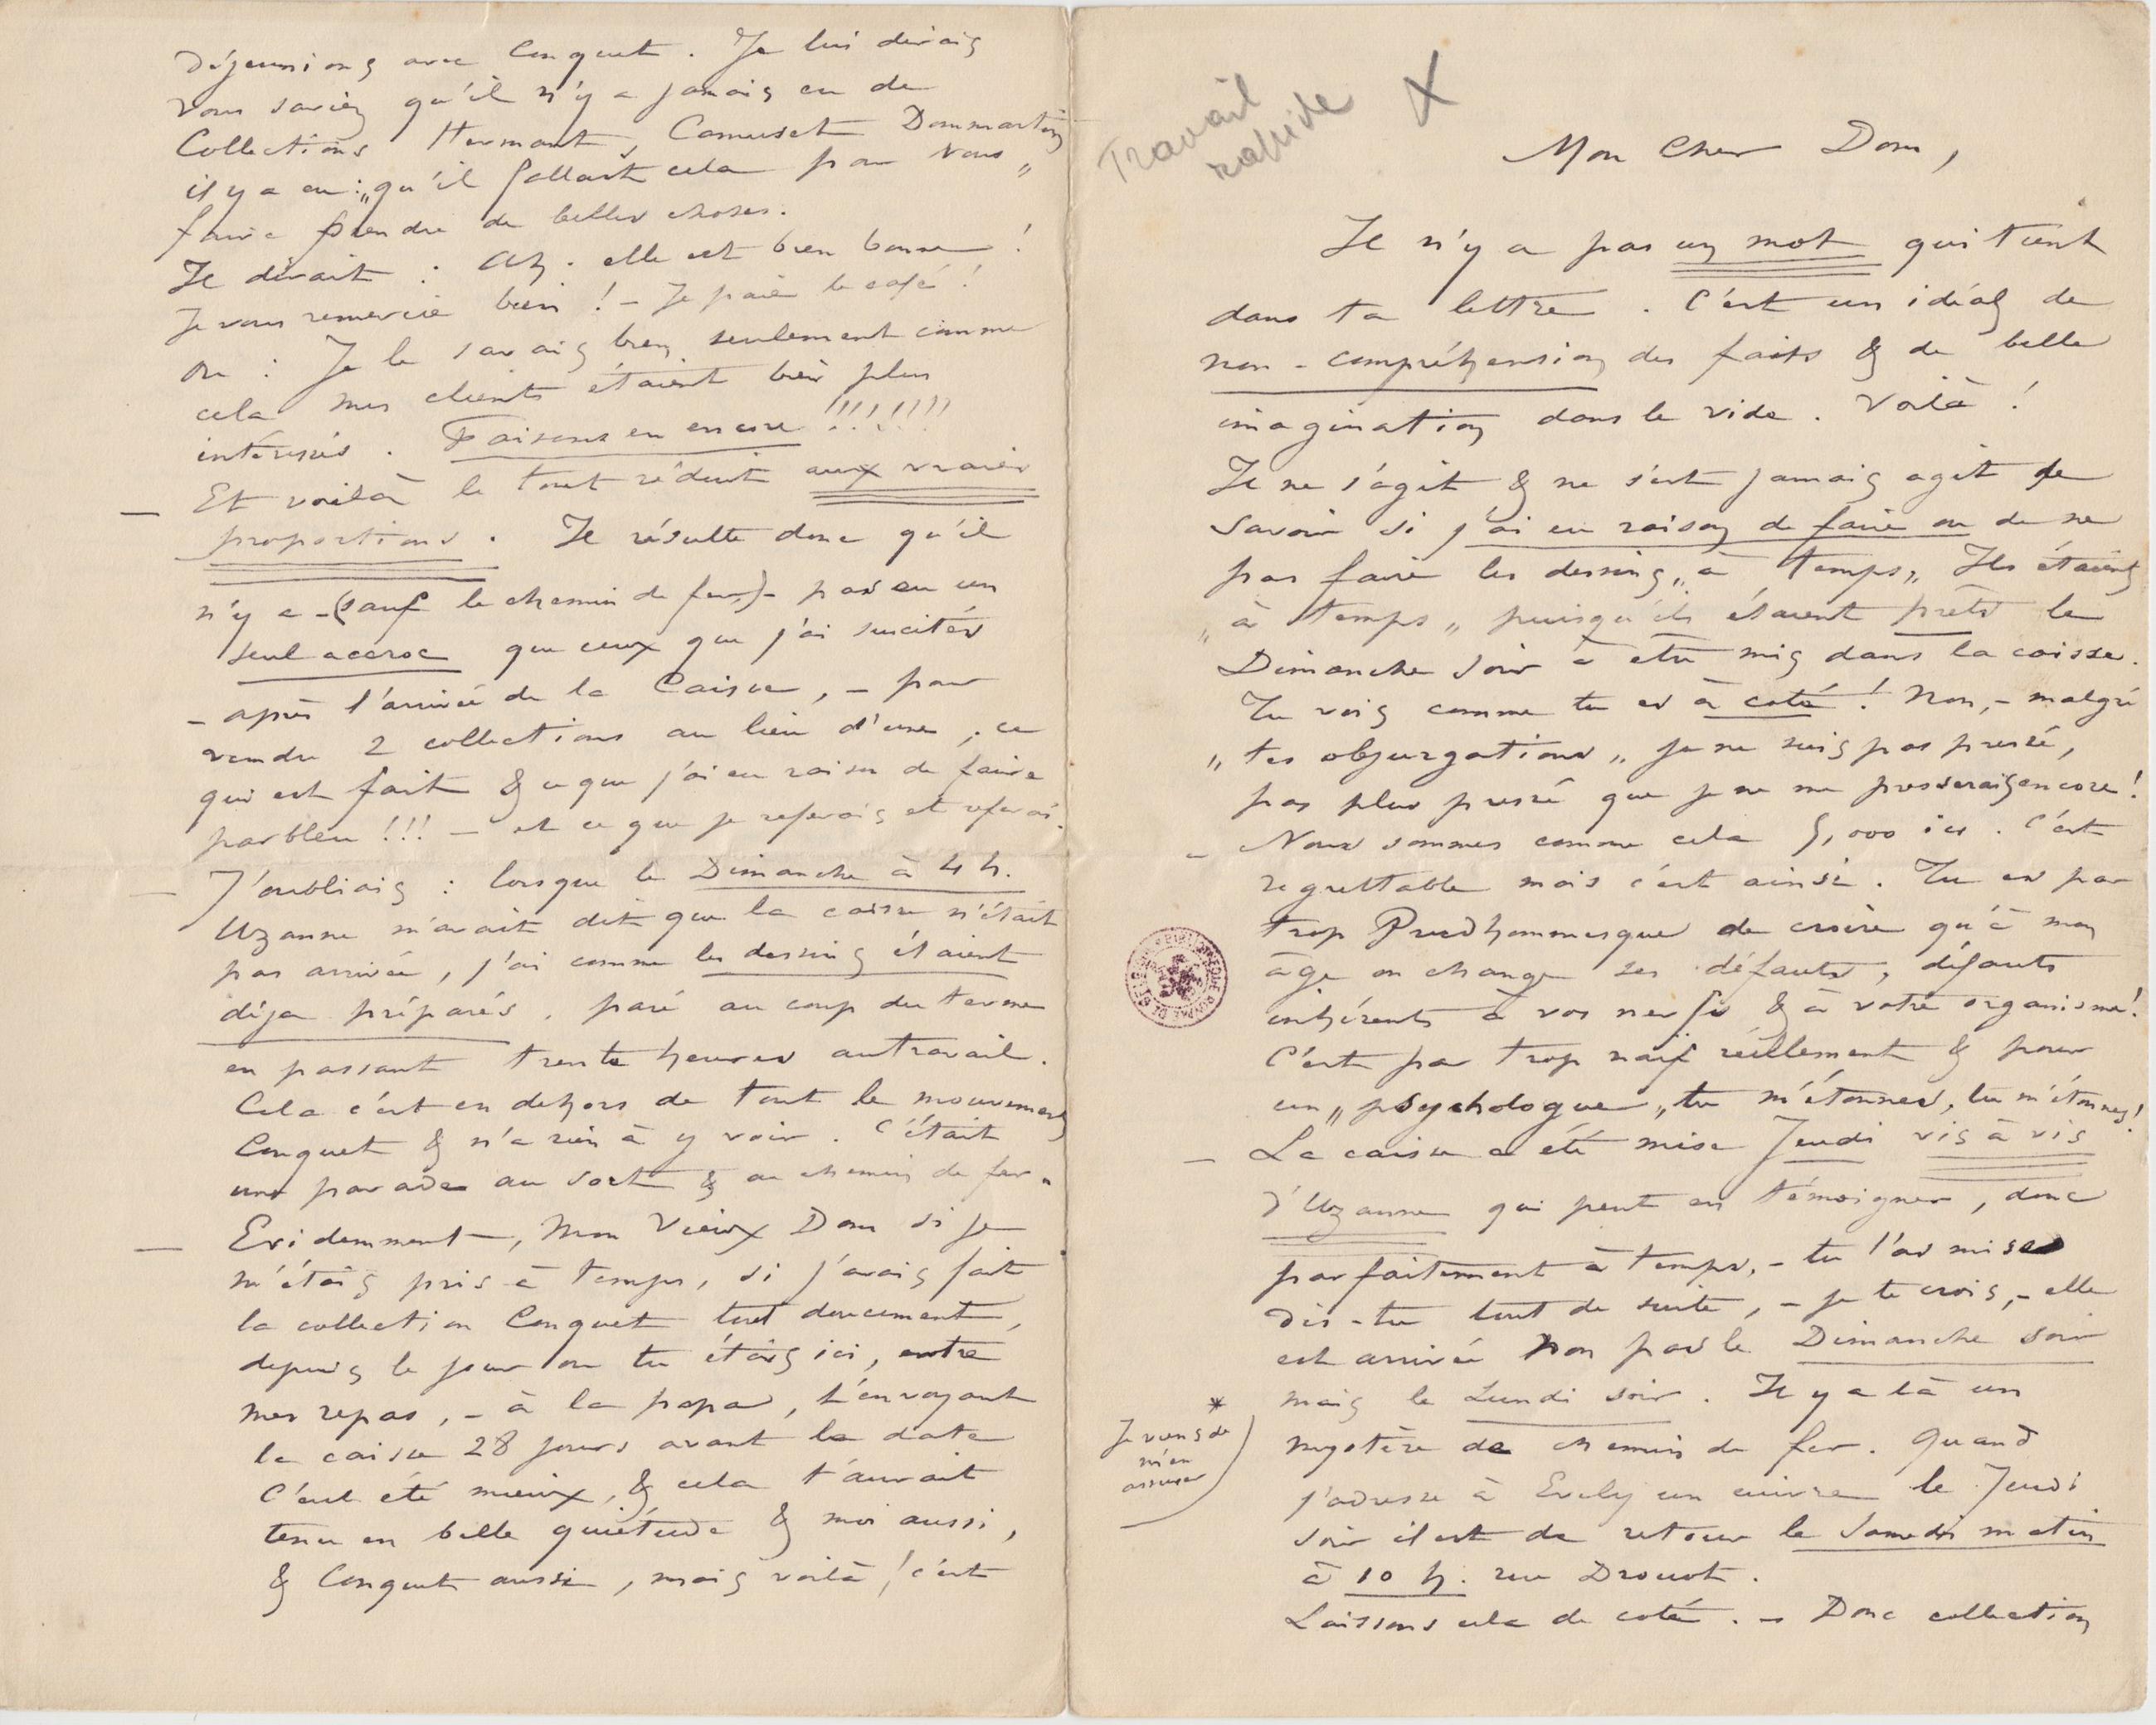 Travail
rapide
X
Mon Cher Dom,
Il n'y a pas un mot qui tient
dans ta lettre. C'est un idéal de
non-compréhension des faits & de belle
imagination dans le vide. Voilà !
Il ne s'agit & ne s'est jamais agit de
savoir si j'ai eu raison de faire ou de ne
pas faire les dessins „à temps„ Ils étaient
„à temps„ puisqu'ils étaient prêts le
Dimanche soir à être mis dans la caisse.
Tu vois comme tu es à coté ! Non, – malgré
„tes objurgations„ je ne suis pas pressé,
pas plus pressé que je ne me presserais encore !
– Nous sommes comme cela 5,000 ici. C'est
regrettable mais c'est ainsi. Tu es par
trop Prudhommesque de croire qu'à mon
âge on change ses défauts, défauts
inhérents à vos nerfs & à votre organisme !
C'est par trop naïf réellement & pour
un „psychologue„ tu m'étonnes, tu m'étonnes !
– La caisse a été mise Jeudi vis à vis
d'Uzanne qui peut en témoigner, donc
parfaitement à temps, – tu l'as mise
dis-tu tout de suite, – je te crois, – elle
est arrivée non pas le Dimanche soir
mais le Lundi soir. Il y a là un
*
Je viens de
m'en
assurer
mystère de chemin de fer. Quand
j'adresse à Evely un cuivre le Jeudi
soir il est de retour le Samedi matin
à 10 h. rue Drouot.
Laissons cela de coté. – Donc collection
Déjeunions avec Conquet. Je lui dirais
vous saviez qu'il n'y a jamais eu de
Collections Hermant, Camuset Dommartin
il y a eu : „qu'il fallait cela pour vous„
faire prendre de belles choses.
Il dirait : Ah. elle est bien bonne !
Je vous remercie bien ! – Je paie le café !
ou : Je le savais bien seulement comme
cela mes clients étaient bien plus
intéressés. Faisons en encore !!!!!!!!
– Et voilà le tout réduit aux vraies
proportions. Il résulte donc qu'il
n'y a – (sauf le chemin de fer) – pas eu un
seul accroc que ceux que j'ai suscités
– après l'arrivée de la Caisse, – pour
vendre 2 collections au lieu d'une, ce
qui est fait & ce que j'ai eu raison de faire
parbleu !!! – et ce que je referais et referai.
– J'oubliais : lorsque le Dimanche à 4 h.
Uzanne m'avait dit que la caisse n'était
pas arrivée, j'ai comme les dessins étaient
déja préparés, paré au coup du terme
en passant trente heures au travail.
Cela c'est en dehors de tout le mouvement
Conquet & n'a rien à y voir. C'était
une parade au sort & au chemin de fer.
– Evidemment, Mon Vieux Dom si je
m'étais pris à temps, si j'avais fait
la collection Conquet tout doucement,
depuis le jour où tu étais ici, entre
mes repas, – à la papa, t'envoyant
la caisse 28 jours avant la date
C'eut été mieux, & cela t'aurait
tenu en belle quiétude & moi aussi,
& Conquet aussi, mais voilà ! c'est